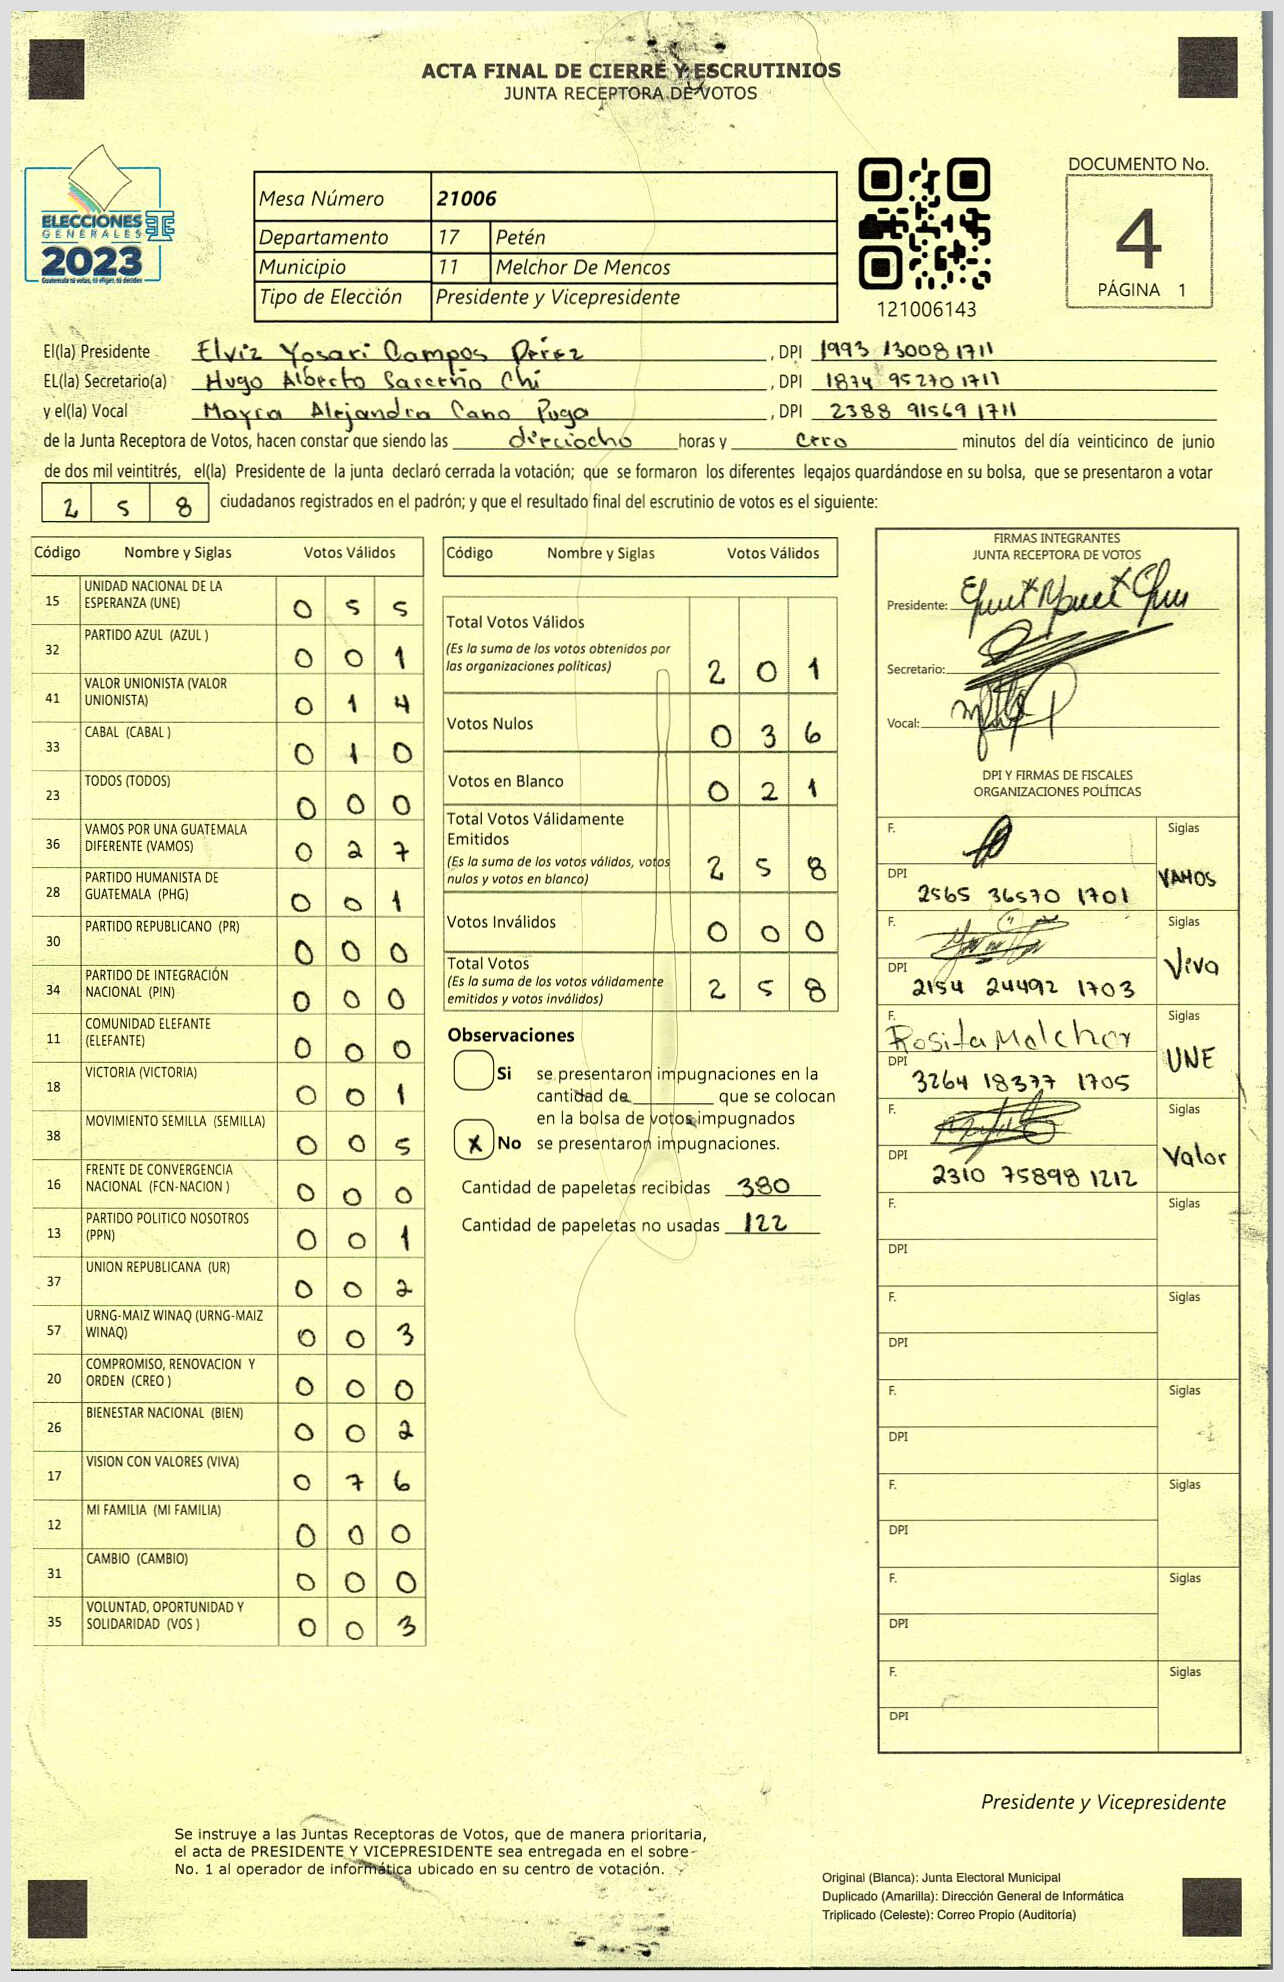 ACTA FINAL DE CIERRE Y ESCRUTINIOS
JUNTA RECEPTORA DE VOTOS
ELECCIONES
GENERALES
2023
Guatemala tú votas, tú eliges, tú decides
Mesa Número 21006
Departamento 17 Petén
Municipio 11 Melchor De Mencos
Tipo de Elección Presidente y Vicepresidente
121006143
DOCUMENTO No.
4
PÁGINA 1
El(la) Presidente Elviz Yosari Campos Pérez, DPI 1993 13008 1711
EL(la) Secretario(a) Hugo Alberto Sarceño Chi, DPI 1874 95270 1711
y el(la) Vocal Mayra Alejandra Cano Puga, DPI 2388 91569 1711
de la Junta Receptora de Votos, hacen constar que siendo las dieciocho horas y cero minutos del día veinticinco de junio
de dos mil veintitrés, el(la) Presidente de la junta declaró cerrada la votación; que se formaron los diferentes legajos guardándose en su bolsa, que se presentaron a votar
2 5 8 ciudadanos registrados en el padrón; y que el resultado final del escrutinio de votos es el siguiente:
Código Nombre y Siglas Votos Válidos
15 UNIDAD NACIONAL DE LA ESPERANZA (UNE) 0 5 5
32 PARTIDO AZUL (AZUL ) 0 0 1
41 VALOR UNIONISTA (VALOR UNIONISTA) 0 1 4
33 CABAL (CABAL ) 0 1 0
23 TODOS (TODOS) 0 0 0
36 VAMOS POR UNA GUATEMALA DIFERENTE (VAMOS) 0 2 7
28 PARTIDO HUMANISTA DE GUATEMALA (PHG) 0 0 1
30 PARTIDO REPUBLICANO (PR) 0 0 0
34 PARTIDO DE INTEGRACIÓN NACIONAL (PIN) 0 0 0
11 COMUNIDAD ELEFANTE (ELEFANTE) 0 0 0
18 VICTORIA (VICTORIA) 0 0 1
38 MOVIMIENTO SEMILLA (SEMILLA) 0 0 5
16 FRENTE DE CONVERGENCIA NACIONAL (FCN-NACION ) 0 0 0
13 PARTIDO POLITICO NOSOTROS (PPN) 0 0 1
37 UNION REPUBLICANA (UR) 0 0 2
57 URNG-MAIZ WINAQ (URNG-MAIZ WINAQ) 0 0 3
20 COMPROMISO, RENOVACION Y ORDEN (CREO ) 0 0 0
26 BIENESTAR NACIONAL (BIEN) 0 0 2
17 VISION CON VALORES (VIVA) 0 7 6
12 MI FAMILIA (MI FAMILIA) 0 0 0
31 CAMBIO (CAMBIO) 0 0 0
35 VOLUNTAD, OPORTUNIDAD Y SOLIDARIDAD (VOS ) 0 0 3
Código Nombre y Siglas Votos Válidos
Total Votos Válidos
(Es la suma de los votos obtenidos por
las organizaciones políticas) 2 0 1
Votos Nulos 0 3 6
Votos en Blanco 0 2 1
Total Votos Válidamente
Emitidos
(Es la suma de los votos válidos, votos
nulos y votos en blanco) 2 5 8
Votos Inválidos 0 0 0
Total Votos
(Es la suma de los votos válidamente
emitidos y votos inválidos) 2 5 8
Observaciones
Si se presentaron impugnaciones en la
cantidad de ________ que se colocan
en la bolsa de votos impugnados
x No se presentaron impugnaciones.
Cantidad de papeletas recibidas 380
Cantidad de papeletas no usadas 122
FIRMAS INTEGRANTES
JUNTA RECEPTORA DE VOTOS
Presidente:
Secretario:
Vocal:
DPI Y FIRMAS DE FISCALES
ORGANIZACIONES POLÍTICAS
F. Siglas
DPI 2565 36570 1701 VAMOS
F. Siglas
DPI 2154 24492 1703 Viva
F. Rosita Melchor Siglas
DPI 3264 18377 1705 UNE
F. Siglas
DPI 2310 75898 1212 Valor
F. Siglas
DPI
F. Siglas
DPI
F. Siglas
DPI
F. Siglas
DPI
F. Siglas
DPI
F. Siglas
DPI
Presidente y Vicepresidente
Se instruye a las Juntas Receptoras de Votos, que de manera prioritaria,
el acta de PRESIDENTE Y VICEPRESIDENTE sea entregada en el sobre
No. 1 al operador de informática ubicado en su centro de votación.
Original (Blanca): Junta Electoral Municipal
Duplicado (Amarilla): Dirección General de Informática
Triplicado (Celeste): Correo Propio (Auditoría)